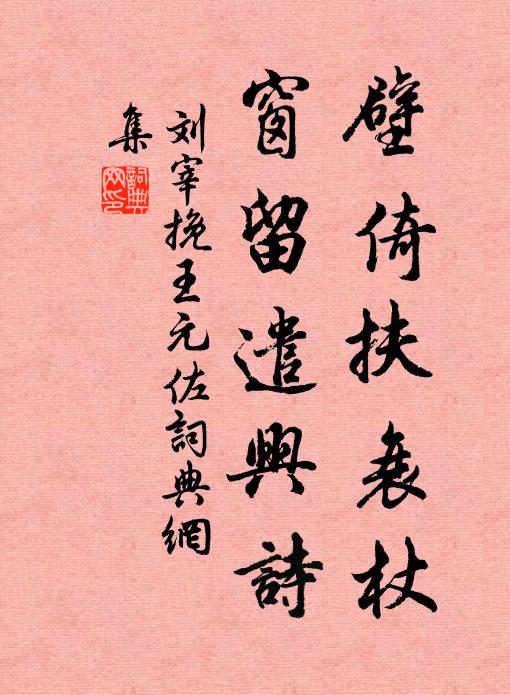 壁倚扶衰杖
窗留遣興詩
刘宰挽王元佐詞典網
集
詞典網印